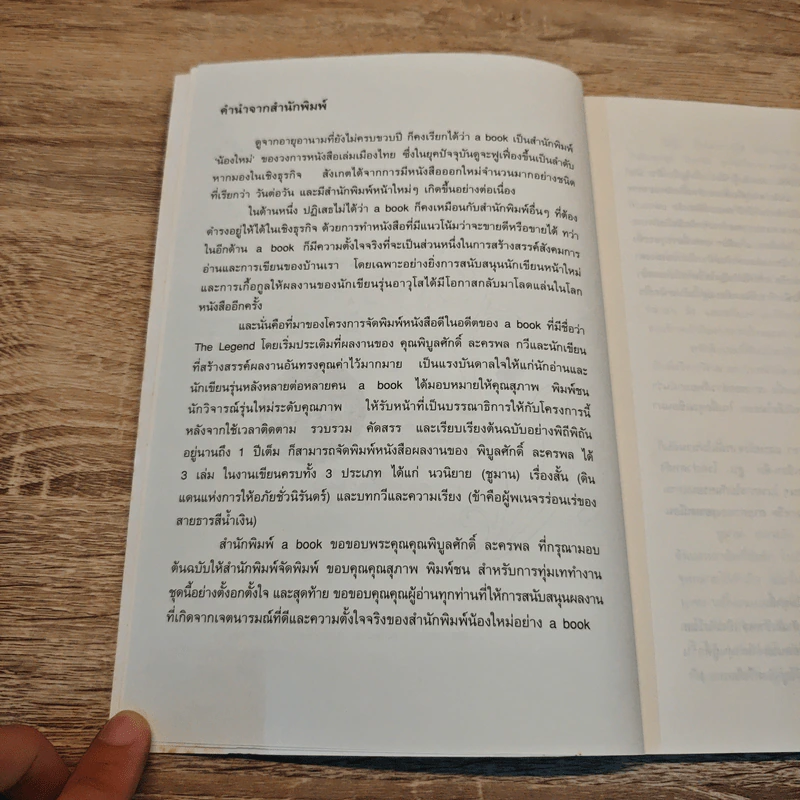 คำนำจากสำนักพิมพ์
ดูจากอายุอานามที่ยังไม่ครบขวบปี ก็คงเรียกได้ว่า a book เป็นสำนักพิมพ์
'น้องใหม่' ของวงการหนังสือเล่มเมืองไทย ซึ่งในยุคปัจจุบันดูจะฟูเฟื่องขึ้นเป็นลำดับ
หากมองในเชิงธุรกิจ สังเกตได้จากการมีหนังสือออกใหม่จำนวนมากอย่างชนิด
ที่เรียกว่า วันต่อวัน และมีสำนักพิมพ์หน้าใหม่ๆ เกิดขึ้นอย่างต่อเนื่อง
ในด้านหนึ่ง ปฏิเสธไม่ได้ว่า a book ก็คงเหมือนกับสำนักพิมพ์อื่นๆ ที่ต้อง
ดำรงอยู่ให้ได้ในเชิงธุรกิจ ด้วยการทำหนังสือที่มีแนวโน้มว่าจะขายดีหรือขายได้ ทว่า
ในอีกด้าน a book ก็มีความตั้งใจจริงที่จะเป็นส่วนหนึ่งในการสร้างสรรค์สังคมการ
อ่านและการเขียนของบ้านเรา โดยเฉพาะอย่างยิ่งการสนับสนุนนักเขียนหน้าใหม่
และการเกื้อกูลให้ผลงานของนักเขียนรุ่นอาวุโสได้มีโอกาสกลับมาโลดแล่นในโลก
หนังสืออีกครั้ง
และนั่นคือที่มาของโครงการจัดพิมพ์หนังสือดีในอดีตของ a book ที่มีชื่อว่า
The Legend โดยเริ่มประเดิมที่ผลงานของ คุณพิบูลศักดิ์ ละครพล กวีและนักเขียน
ที่สร้างสรรค์ผลงานอันทรงคุณค่าไว้มากมาย เป็นแรงบันดาลใจให้แก่นักอ่านและ
นักเขียนรุ่นหลังหลายต่อหลายคน a book ได้มอบหมายให้คุณสุภาพ พิมพ์ชน
นักวิจารณ์รุ่นใหม่ระดับคุณภาพ ให้รับหน้าที่เป็นบรรณาธิการให้กับโครงการนี้
หลังจากใช้เวลาติดตาม รวบรวม คัดสรร และเรียบเรียงต้นฉบับอย่างพิถีพิถัน
อยู่นานถึง 1 ปีเต็ม ก็สามารถจัดพิมพ์หนังสือผลงานของ พิบูลศักดิ์ ละครพล ได้
3 เล่ม ในงานเขียนครบทั้ง 3 ประเภท ได้แก่ นวนิยาย (ชูมาน) เรื่องสั้น (ดิน
แดนแห่งการให้อภัยชั่วนิรันดร์) และบทกวีและความเรียง (ข้าคือผู้พเนจรร่อนเร่ของ
สายธารสีน้ำเงิน)
สำนักพิมพ์ a book ขอขอบพระคุณคุณพิบูลศักดิ์ ละครพล ที่กรุณามอบ
ต้นฉบับให้สำนักพิมพ์จัดพิมพ์ ขอบคุณคุณสุภาพ พิมพ์ชน สำหรับการทุ่มเททำงาน
ชุดนี้อย่างตั้งอกตั้งใจ และสุดท้าย ขอขอบคุณคุณผู้อ่านทุกท่านที่ให้การสนับสนุนผลงาน
ที่เกิดจากเจตนารมณ์ที่ดีและความตั้งใจจริงของสำนักพิมพ์น้องใหม่อย่าง a book